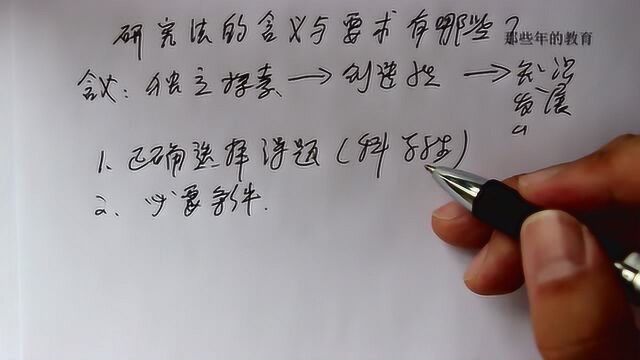 研究法的含义与要求有哪些？
那些年的教育
含义：独立探索→创造性→知识
发展
1、正确选择课题（科 ）
2、必要条件.